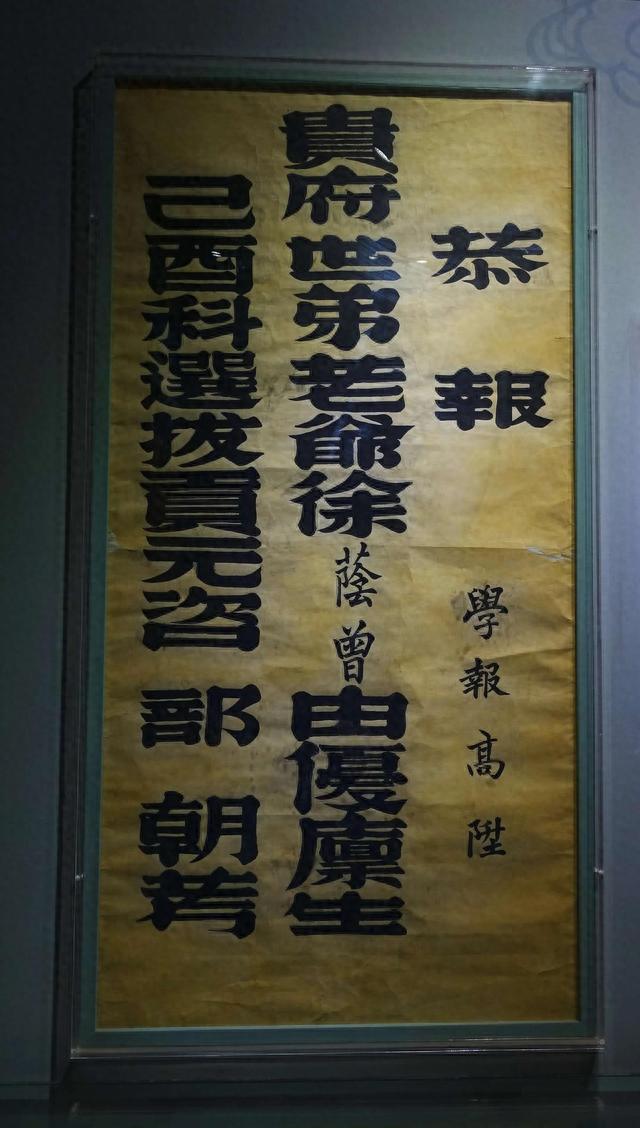 恭報 學報高陞
貴府世弟老爺徐蔭曾由優廩生
己酉科選拔貢元咨 部 朝考